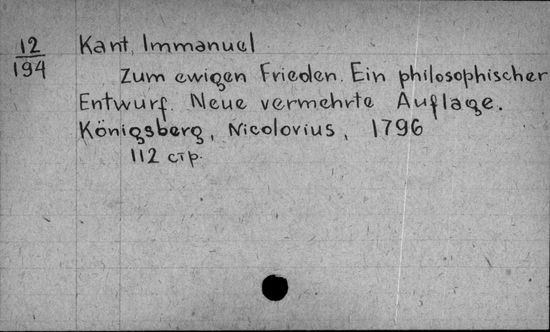 12
194
Kant, Immanuel
Zum ewigen Frieden. Ein philosophischer
Entwurf. Neue vermehrte Auflage.
Königsberg, Nicolovius, 1796
112 стр.